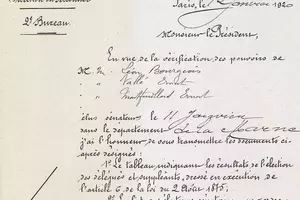 2e Bureau.
Paris, le Janvier 1920
Monsieur le Président,
En vue de la vérification des pouvoirs de
M. M. Léon Bourgeois
" Vallé Ernest
" Montfeuillard Ernest
élus sénateurs le 11 Janvier
dans le département de la Marne
j'ai l'honneur de vous transmettre les documents ci-
après désignés:
1. Le tableau indiquant les résultats de l'élection
des délégués et suppléants, dressé en exécution de
l'article 6 de la loi du 2 Août 1875;